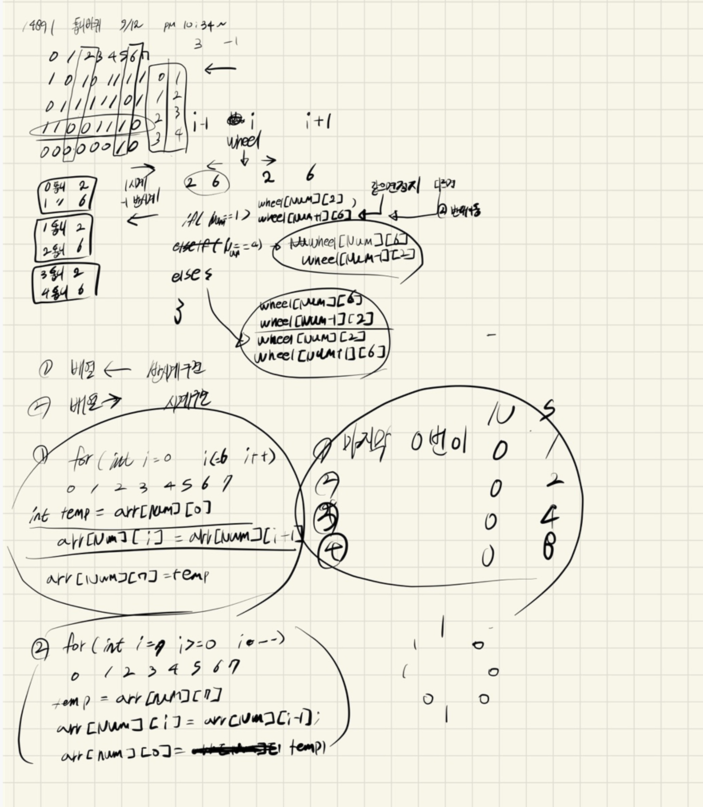 14891 톱니바퀴 9/12 pm 10:34~
3 -1
0 1 2 3 4 5 6 7
1 0 1 0 1 1 1 1 0 1
0 1 1 1 1 1 0 1 1 2
1 1 0 0 1 1 1 0 2 3
0 0 0 0 0 0 1 0 3 4
i-1 i i+1
wheel
← ↓ →
2 6 2 6
0톱니 2
1 " 6
1톱니 2
2톱니 6
3톱니 2
4톱니 6
1 시계
-1 반시계
if( num==1)
wheel[num][2]
wheel[num+1][6]
else if( num==0)
wheel[num][6]
wheel[num-1][2]
else {
}
wheel[num][6]
wheel[num-1][2]
wheel[num][2]
wheel[num+1][6]
① 배열 ← 반시계구현
② 배열 → 시계구현
① for(int i=0 i<=6 i++)
0 1 2 3 4 5 6 7
int temp = arr[num][0]
arr[num][i] = arr[num][i+1]
arr[num][7]=temp
N S
① 마지막 0번이 0 1
② 0 2
③ 0 4
④ 0 8
② for(int i=7 i>=0 i--)
0 1 2 3 4 5 6 7
temp = arr[num][7]
arr[num][i] = arr[num][i-1];
arr[num][0]= temp;
1
1 0
1 0
0 0
1